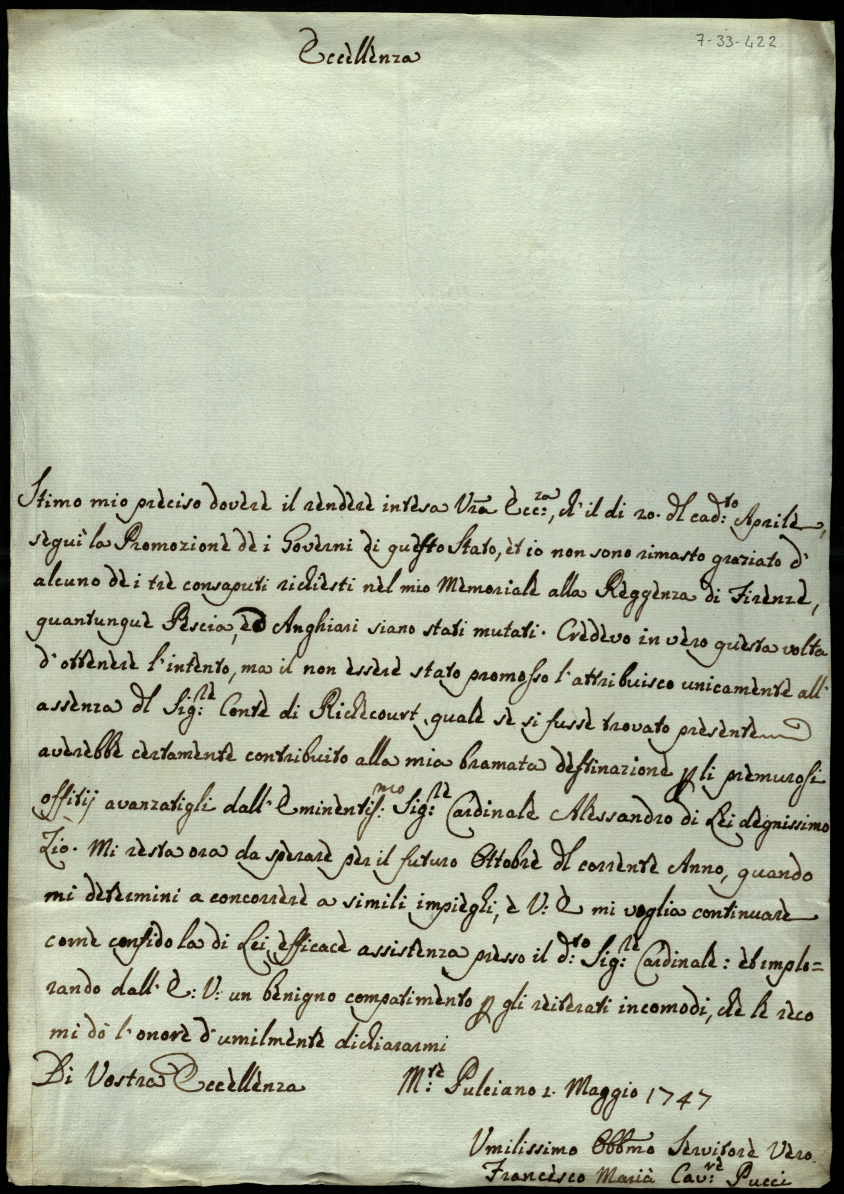 7-33-422
Eccellenza
Stimo mio preciso dovere il rendere intesa Vra Ecc:za, ch'il di 20. dl cad:to Aprile,
seguì la Promozione de i Governi di questo Stato, et io non sono rimasto graziato d'
alcuno de i trè consaputi richiesti nel mio Memoriale alla Reggenza di Firenze,
quantunque Pescia, ed Anghiari siano stati mutati. Credevo in vero questa volta
d'ottenere l'intento, ma il non essere stato promosso l'attribuisco unicamente all'
assenza dl Sig:re Conte di Richecourt, quale se si fusse trovato presente
averebbe certamente contribuito alla mia bramata destinazione p li premurosi
offitij avanzatigli dall'Eminentis:mo Sig:re Cardinale Alessandro di Lei degnissimo
Zio. Mi resta ora da sperare per il futuro Ottobre dl corrente Anno, quando
mi determini a concorrere a simili impieghi, e V: E mi voglia continuare
come confido la di Lei efficace assistenza presso il d:to Sig:re Cardinale: et implo=
rando dall'E: V: un benigno compatimento p gli reiterati incomodi, che le reco
mi dò l'onore d'umilmente dichiararmi
Di Vostra Eccellenza
M:te Pulciano 1. Maggio 1747
Umilissimo Obbmo Servitore Vero
Francesco Maria Cav:re Pucci